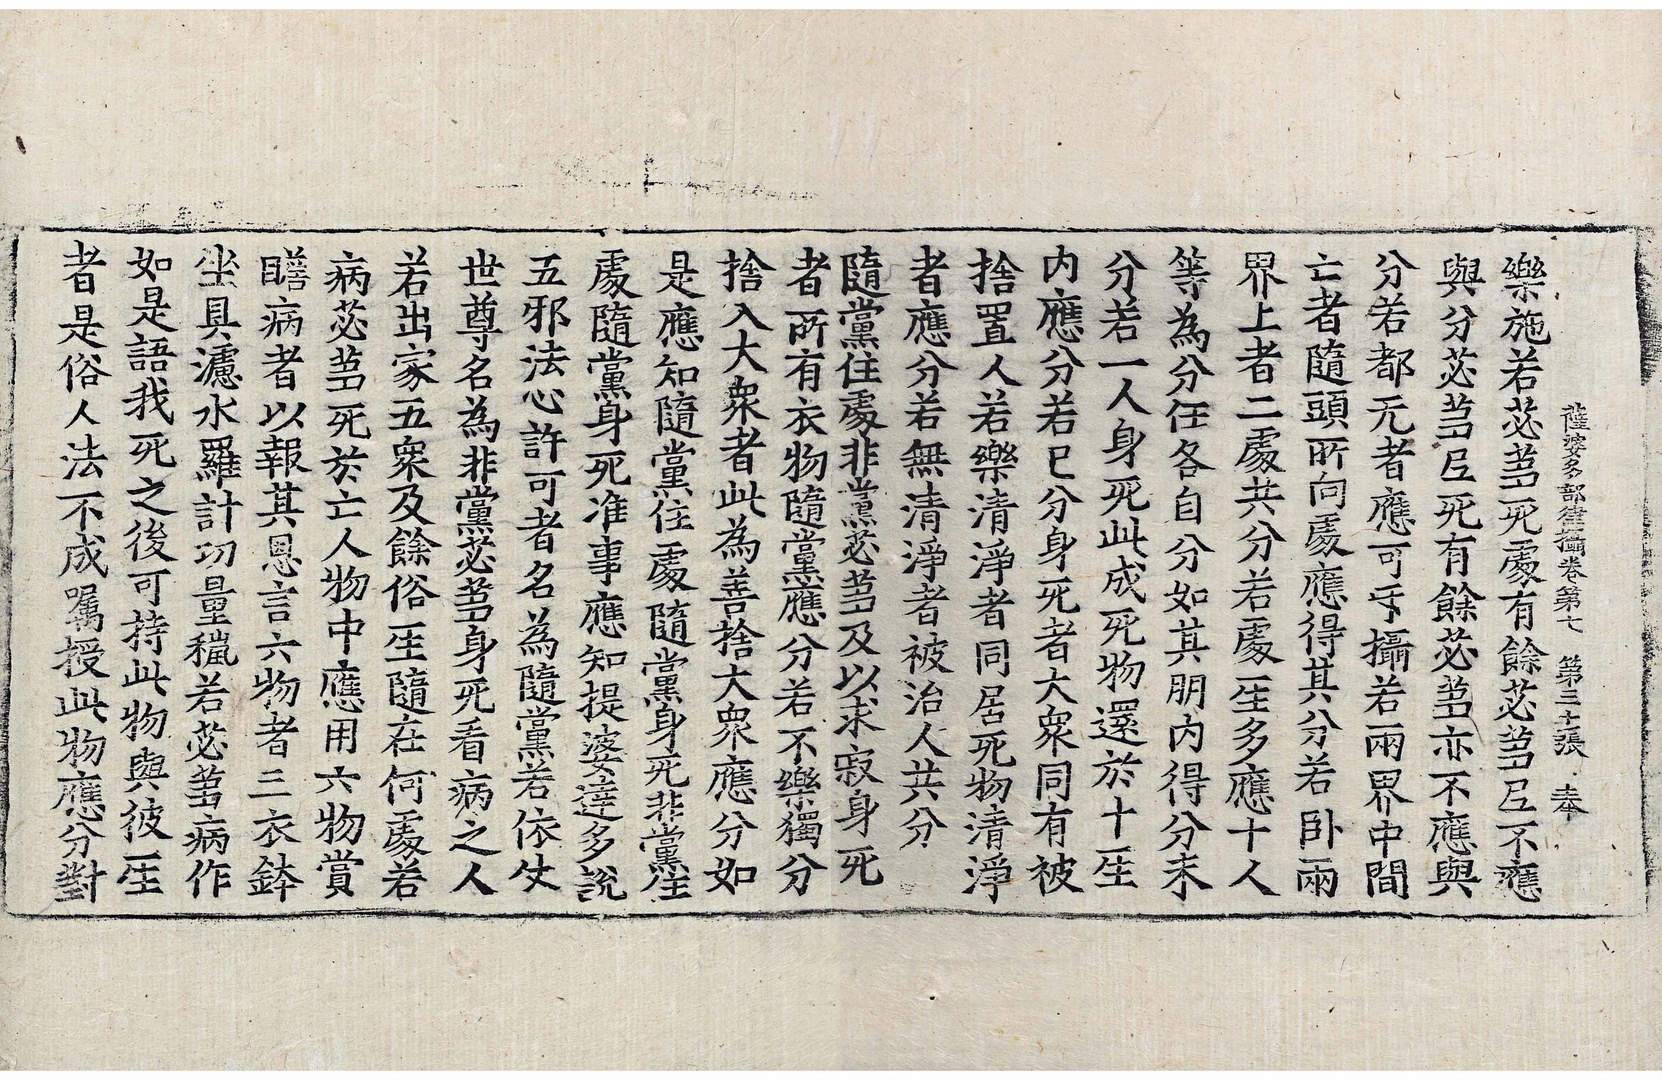 薩婆多部律攝卷第七　第三十張　奉
樂施若苾芻死處有餘苾芻尼不應
與分苾芻尼死有餘苾芻亦不應與
分若都无者應可互攝若兩界中間
亡者隨頭所向處應得其分若卧兩
界上者二處共分若處𤯔多應十人
等為分任各自分如其朋内得分未
分若一人身死此成死物還於十𤯔
内應分若已分身死者大衆同有被
捨置人若樂清淨者同居死物清淨
者應分若無清淨者被治人共分
隨黨住處非黨苾芻及以求寂身死
者所有衣物隨黨應分若不樂獨分
捨入大衆者此為善捨大衆應分如
是應知隨黨住處隨黨身死非黨住
處隨黨身死准事應知提婆達多說
五邪法心許可者名為隨黨若依仗
世尊名為非黨苾芻身死看病之人
若出家五衆及餘俗𤯔隨在何處若
病苾芻死於亡人物中應用六物賞
瞻病者以報其恩言六物者三衣鉢
坐具濾水羅計功量若苾芻病作
如是語我死之後可持此物與彼𤯔
者是俗人法不成囑授此物應分對